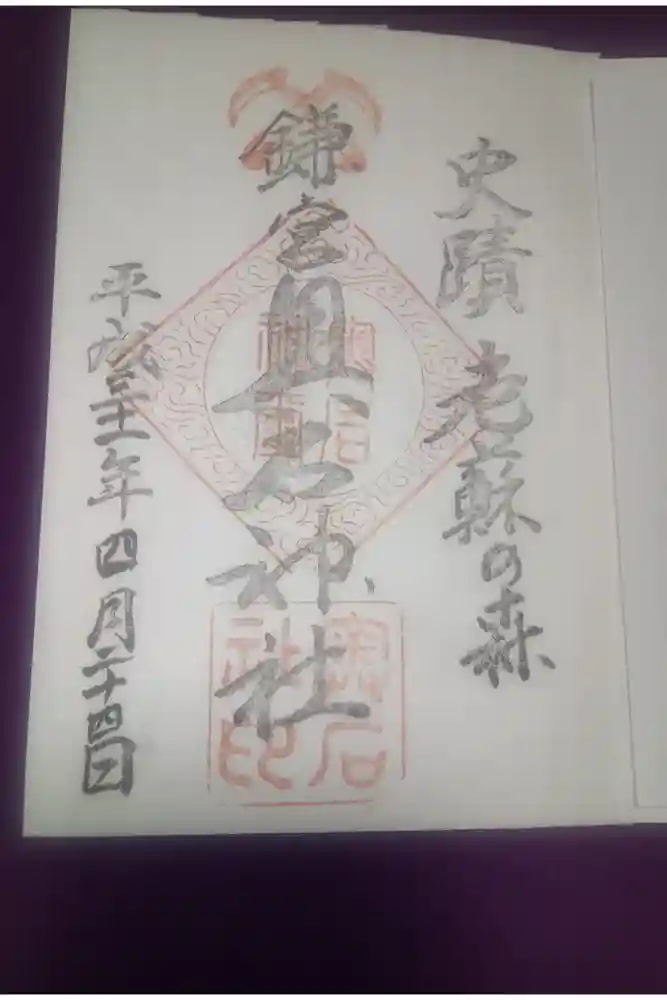 史蹟 老蘇の森
鎌宮奥石神社
平成三十一年四月二十四日
奥石
社印